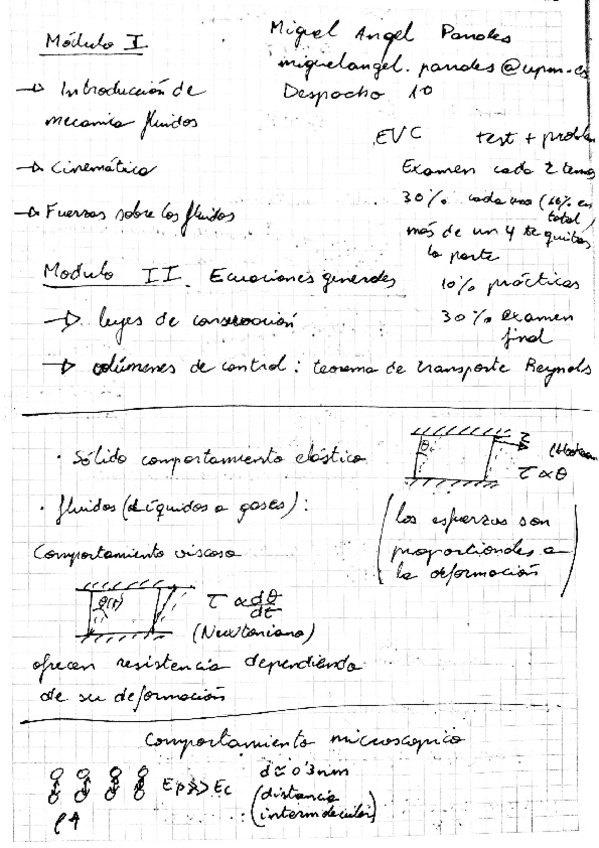 Módulo I
Miguel Angel Parrales
miguelangel.parrales@upm.es
Despacho 10
→ Introducción de
mecanica fluidos
EVC test + problem
→ Cinemática
Examen cada 2 temas
30% cada uno (60% en
total)
→ Fuerzas sobre los fluidos
más de un 4 te quitas
la parte
Modulo II. Ecuaciones generales
10% prácticas
→ leyes de conservación
30% examen
final
→ volúmenes de control: teorema de transporte Reynols
· Sólido comportamiento elástico
θ τ
τ ∝ θ
· fluidos (líquidos o gases):
(los esfuerzos son
proporcionales a
la deformación)
Comportamiento viscoso
θ(t) τ ∝ dθ/dt
(Newtoniano)
ofrecen resistencia dependiendo
de su deformación
Comportamiento microscopico
Ep>>Ec d ≈ 0'3nm
(distancia
intermolecular)
ρ↑